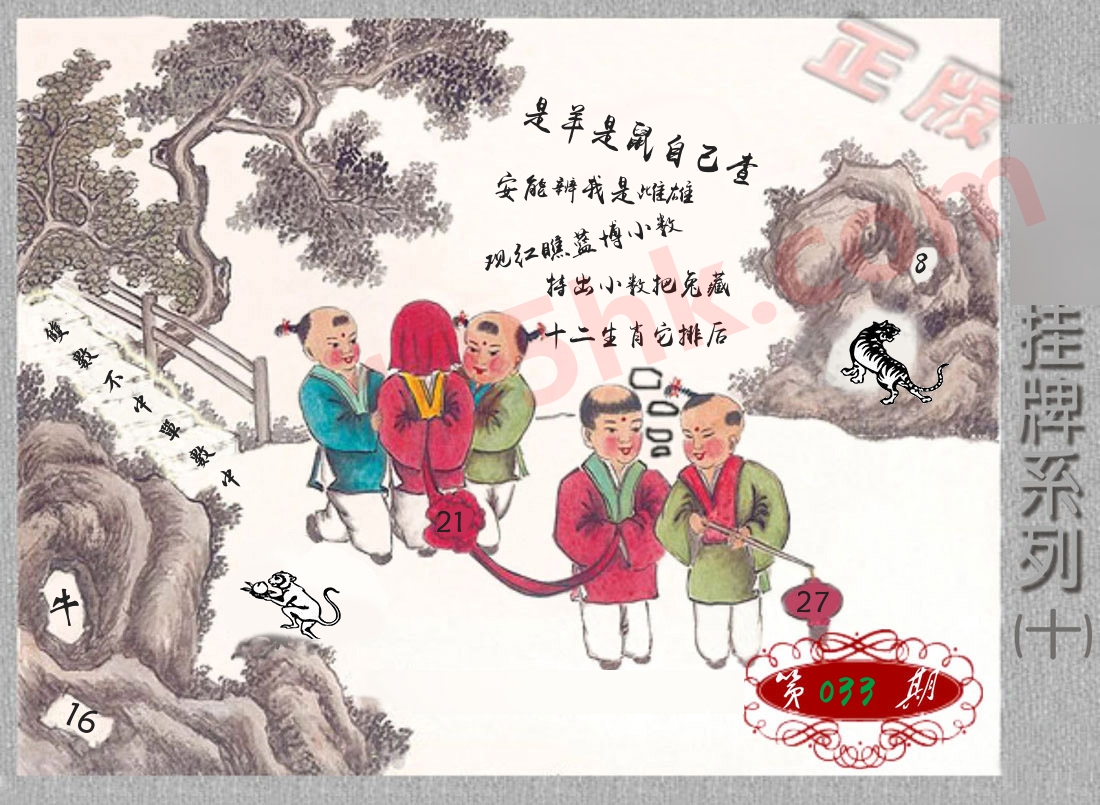 正版
是羊是鼠自己查
安能辨我是雌雄
现红瞧蓝博小数
持出小数把兔藏
十二生肖它排后
8
雙數不中單數中
口口吕
21
27
牛
16
第033期
挂牌系列(十)
5hk.com